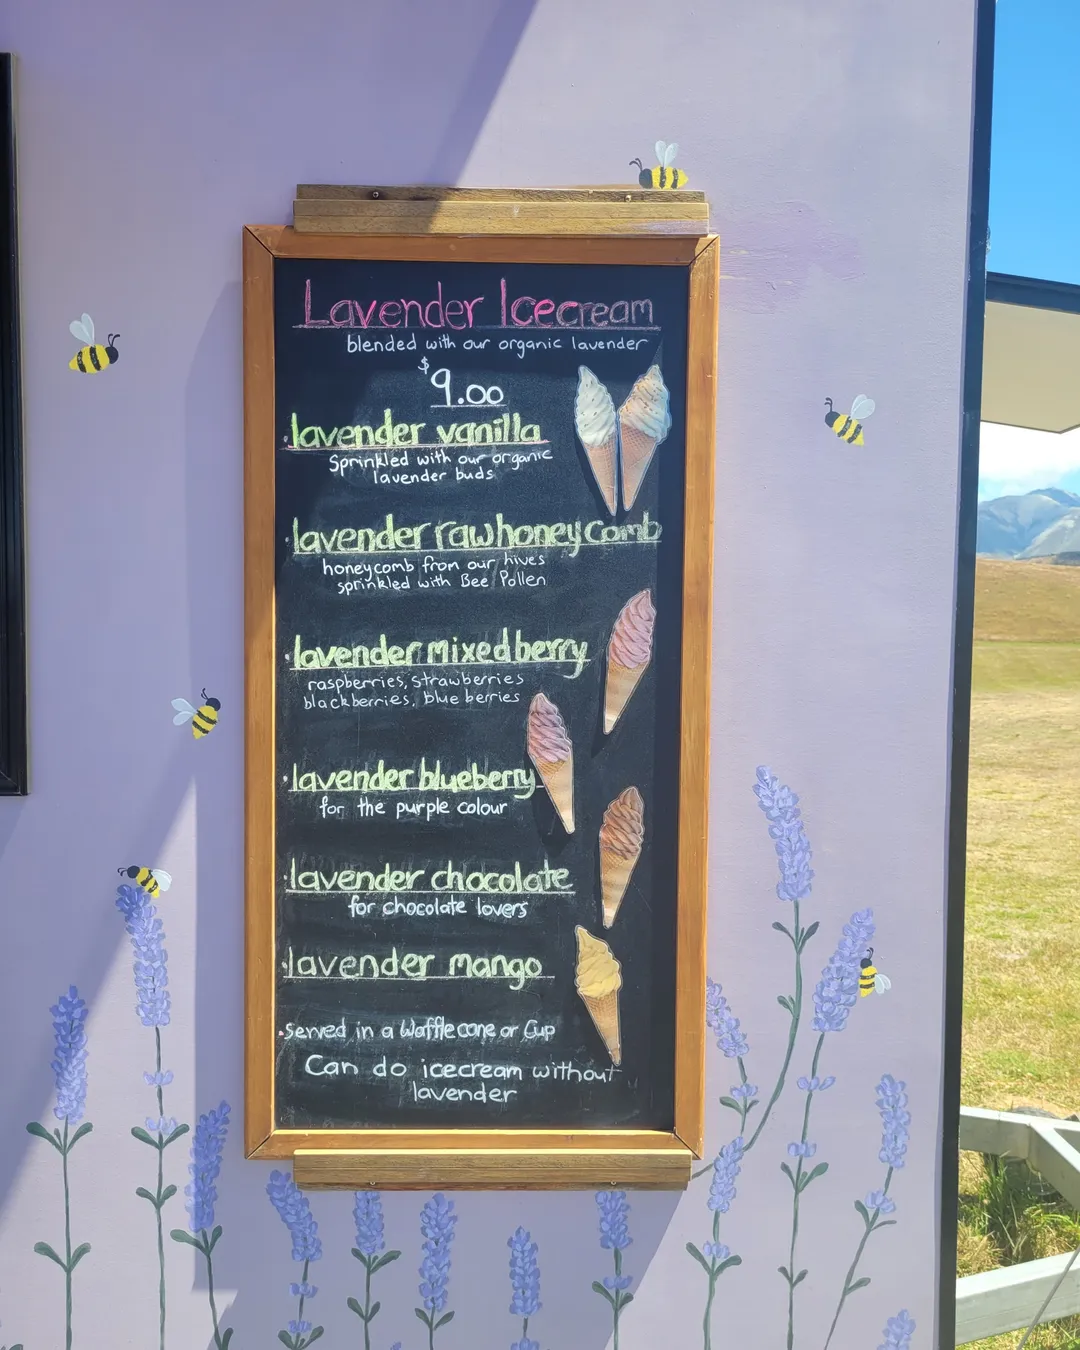 Lavender Icecream
blended with our organic lavender
$9.00
·lavender vanilla
Sprinkled with our organic
lavender buds
·lavender raw honeycomb
honeycomb from our hives
sprinkled with Bee Pollen
·lavender mixed berry
raspberries, strawberries
blackberries, blue berries
·lavender blueberry
for the purple colour
·lavender chocolate
for chocolate lovers
·lavender mango
·served in a Waffle cone or Cup
Can do icecream without
lavender